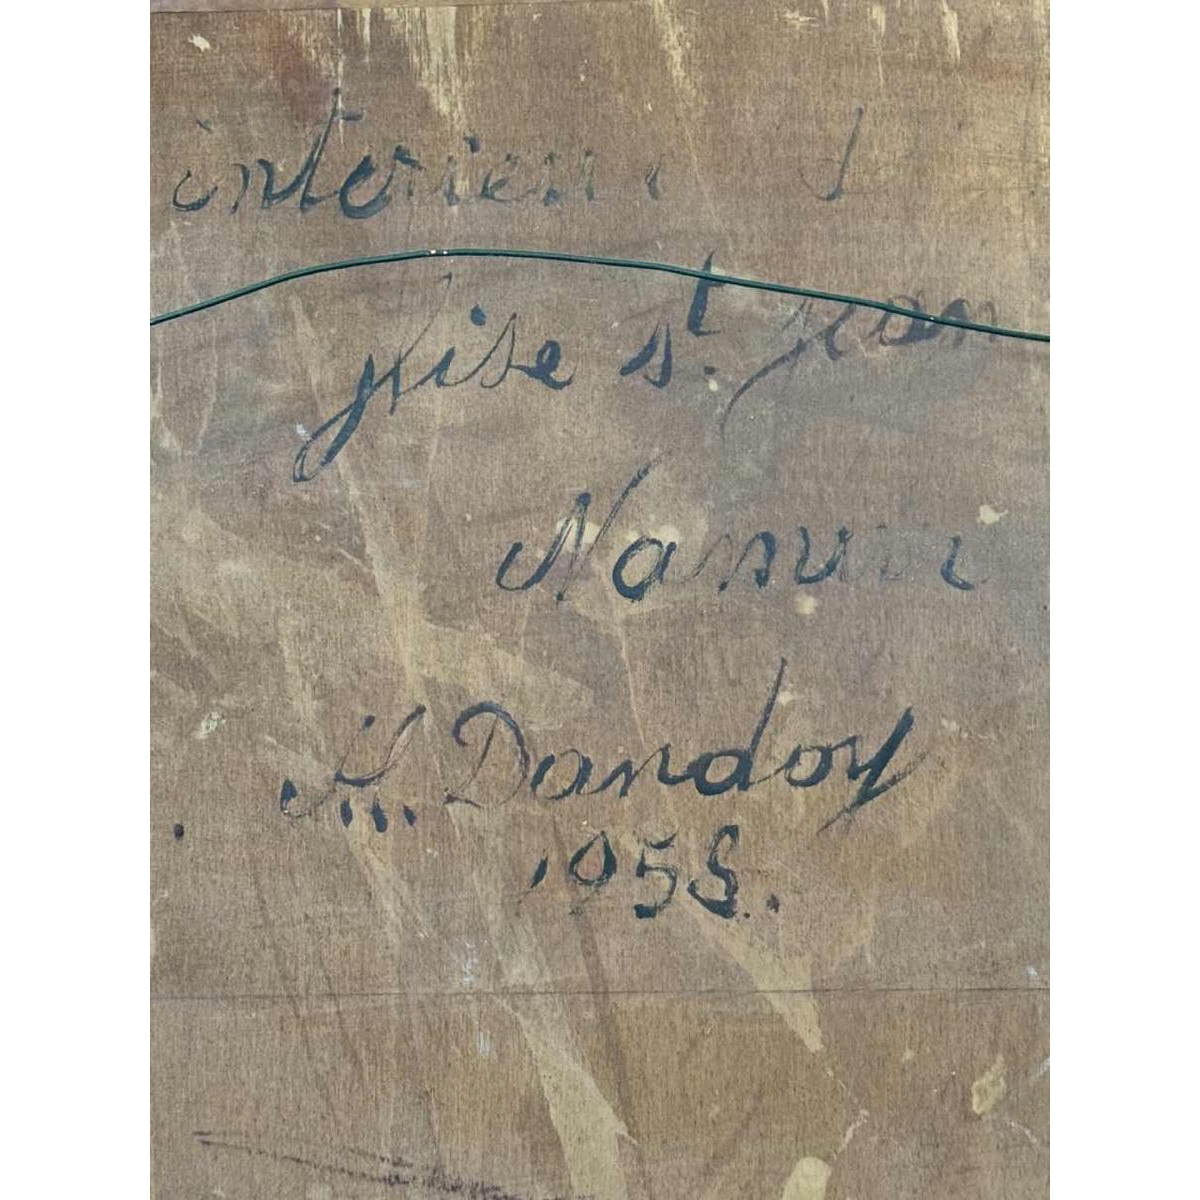 interieur d
glise st. Jean
Namur
Dandoy
1958.